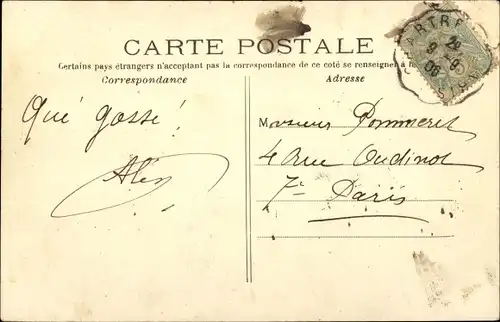 CARTE POSTALE
Certains pays étrangers n'acceptant pas la correspondance de ce coté se renseigner à la
Correspondance
Adresse
Qué gosse!
Monsieur Pommeret
4 Rue Oudinot
7e Paris